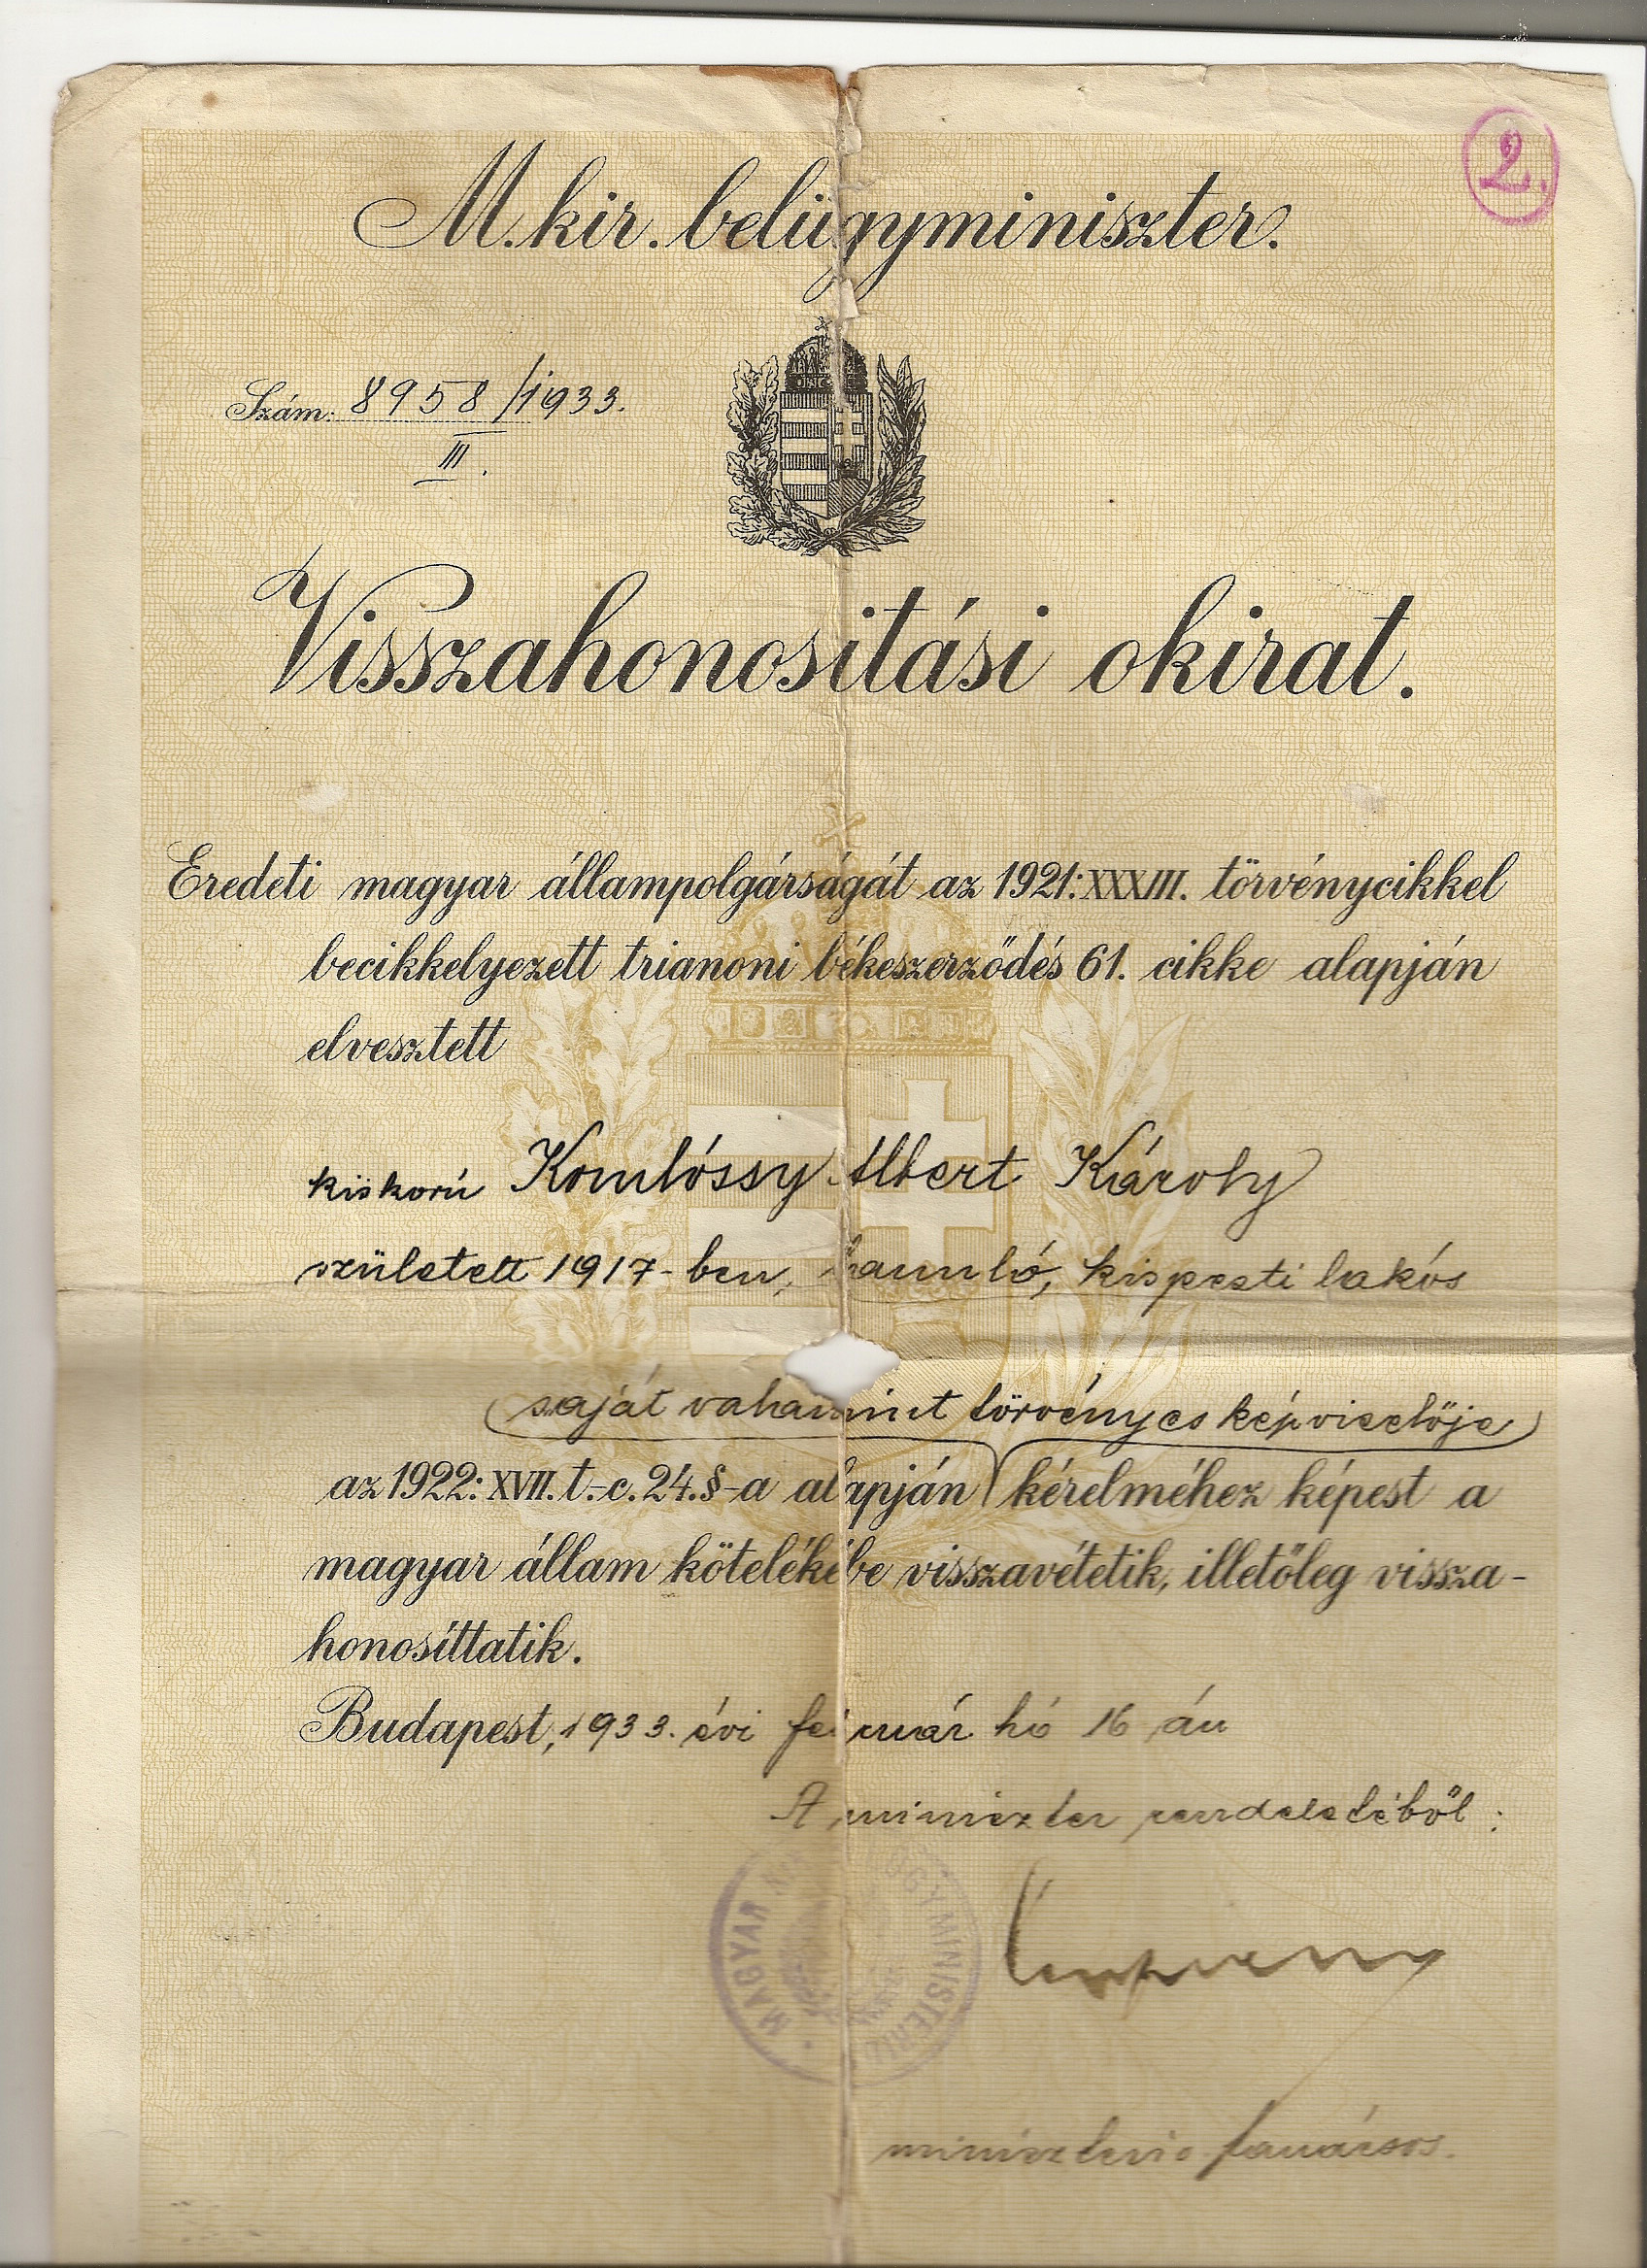 2.
M. kir. belügyminiszter.
Szám: 8958/1933.
III.
Visszahonosítási okirat.
Eredeti magyar állampolgárságát az 1921: XXXIII. törvénycikkel
becikkelyezett trianoni békeszerződés 61. cikke alapján
elvesztett
kiskorú Komlóssy Albert Károly
született 1917-ben, tanuló, kispesti lakós
saját valamint törvényes képviselője
az 1922: XVII. t.-c. 24. §-a alapján kérelméhez képest a
magyar állam kötelékébe visszavétetik, illetőleg vissza-
honosíttatik.
Budapest, 1933. évi február hó 16 án
A miniszter rendeletéből:
MAGYAR KIR. BELÜGYMINISTERIUM
miniszteri tanácsos.